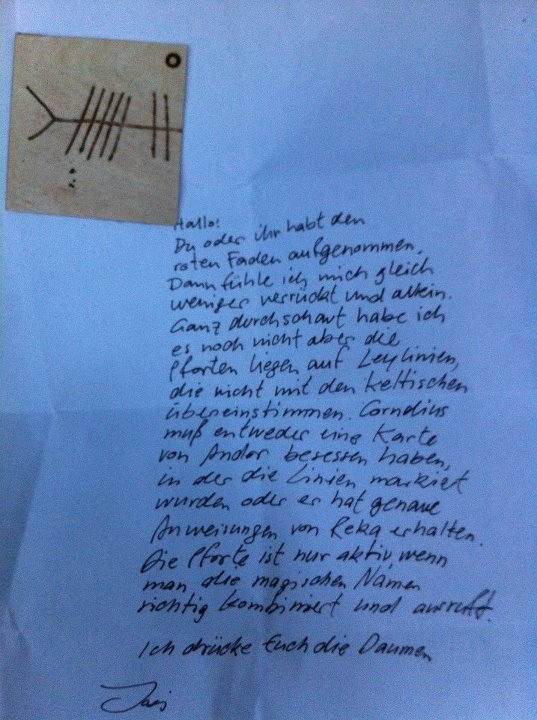 Hallo!
Du oder ihr habt den
roten Faden aufgenommen.
Dann fühle ich mich gleich
weniger verrückt und allein.
Ganz durchschaut habe ich
es noch nicht aber die
Pforten liegen auf Leylinien,
die nicht mit den keltischen
übereinstimmen. Cornelius
muß entweder eine Karte
von Andor besessen haben,
in der die Linien markiert
wurden oder er hat genaue
Anweisungen von Reka erhalten.
Die Pforte ist nur aktiv, wenn
man die magischen Namen
richtig kombiniert und ausruft.
Ich drücke Euch die Daumen